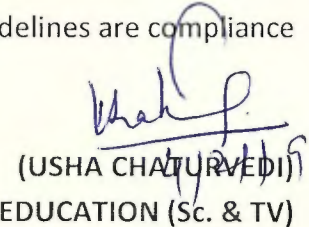 delines are compliance
(USHA CHATURVEDI)
EDUCATION (Sc. & TV)